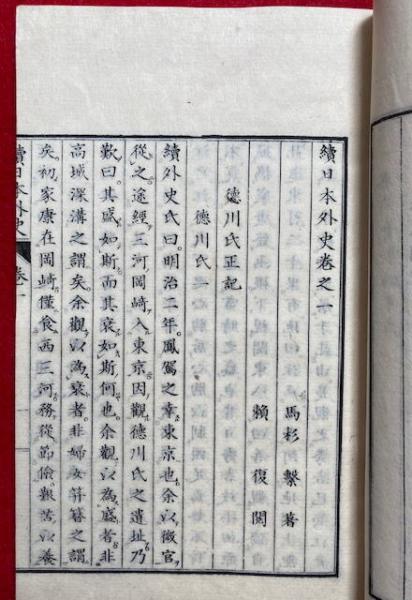 續日本外史卷之一
馬杉繫著
賴復閱
德川氏正記
德川氏一
續外史氏曰。明治二年。鳳駕之幸東京也。余以微官
從之。途經三河岡崎。入東京。因觀德川氏之遺址。乃
歎曰。其盛如斯。而其衰如斯何也。余觀以為盛者。非
高城深溝之謂矣。余觀以為衰者。非婦女笄簪之謂
矣。初家康在岡崎。僅食西三河。務從節儉。艱苦以養
續日本外史 卷一